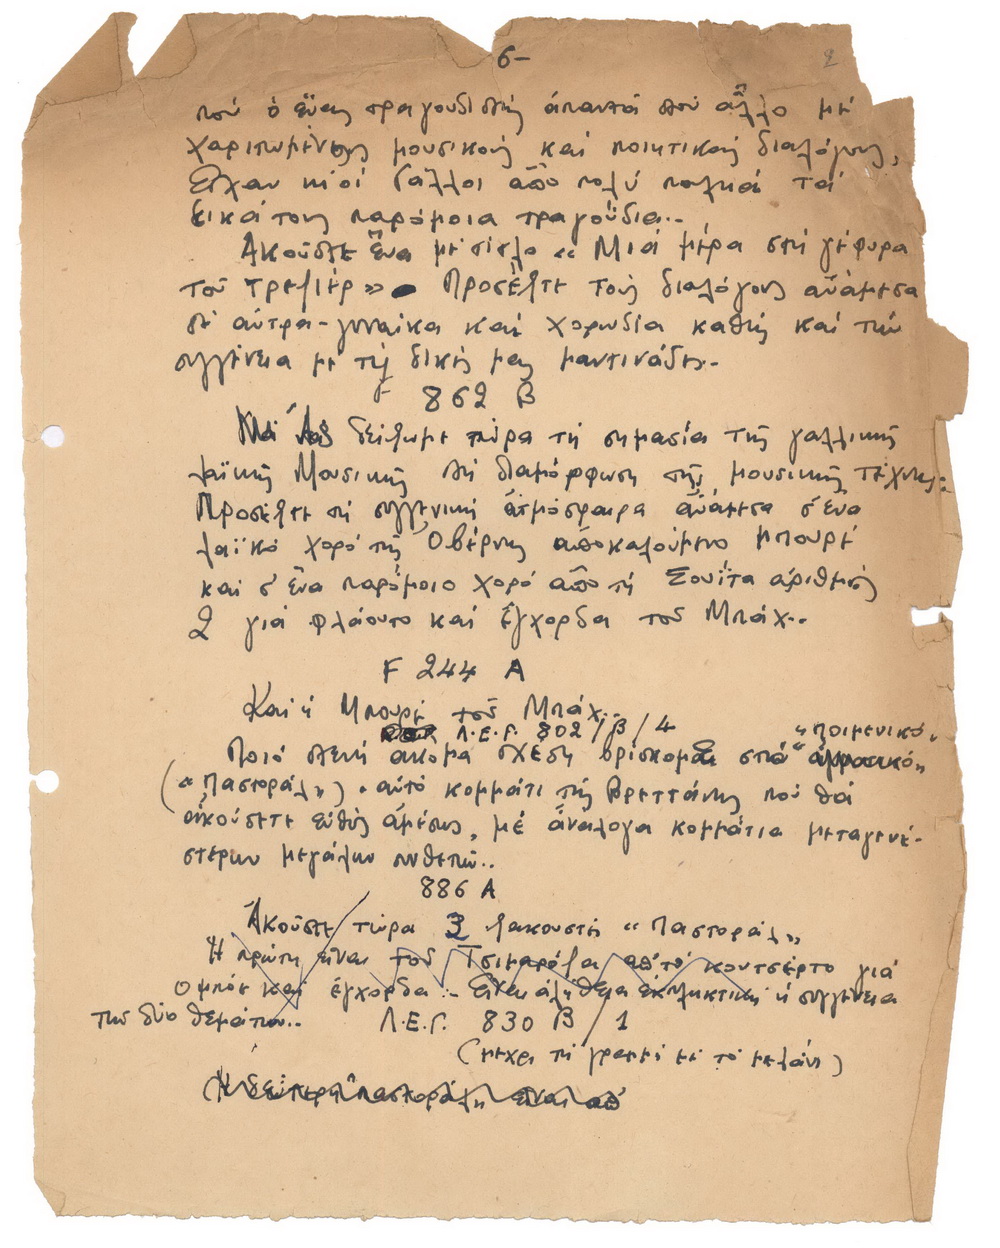 6-
2
πού ὁ ἕνας τραγουδιστής ἀπαντᾶ στόν ἄλλο μέ
χαριτωμένους μουσικούς καί ποιητικούς διαλόγους,
Εἶχαν κι οἱ Γάλλοι ἀπό πολύ παλιά τά
δικά τους παρόμοια τραγούδια..
Ἀκοῦστε ἕνα μέ τίτλο «Μιά μέρα στή γέφυρα
τοῦ Τρεγιέρ» Προσέξτε τούς διαλόγους ἀνάμεσα
σέ ἄντρα-γυναίκα καί χορωδία καθώς καί τήν
συγγένεια μέ τίς δικές μας μαντινάδες.-
F 862 B
Ἄς δείξωμε τώρα τή σημασία τῆς γαλλικῆς
λαϊκῆς Μουσικῆς στή διαμόρφωση τῆς μουσικῆς τέχνης:
Προσέξτε τή συγγενική ἀτμόσφαιρα ἀνάμεσα σ' ἕνα
λαϊκό χορό τῆς Ὀβέρνης ἀποκαλούμενο μπουρέ
καί σ' ἕνα παρόμοιο χορό ἀπό τή Σουΐτα ἀριθμός
2 γιά φλάουτο καί ἔγχορδα τοῦ Μπάχ..
F 244 A
Καί ἡ Μπουρέ τοῦ Μπάχ..
Λ.Ε.Γ. 802/β/4 «ποιμενικό»
Πιό στενή ἀκόμα σχέση βρίσκομε στό
(«Παστοράλ») αὐτό κομμάτι τῆς Βρεττάνης πού θά
ἀκούσετε εὐθύς ἀμέσως, μέ ἀνάλογα κομμάτια μεταγενέ-
στερων μεγάλων συνθετῶν..
886 A
Ἀκοῦστε τώρα 3 ξακουστές «Παστοράλ»
Ἡ πρώτη εἶναι τοῦ Τσιμαρόζα ἀπό τό κοντσέρτο γιά
ὄμποε καί ἔγχορδα.- Εἶναι ἀλήθεια ἐκπληκτική ἡ συγγένεια
τῶν δύο θεμάτων..
Λ.Ε.Γ. 830 B/1
(μέχρι τή γραμμή μέ τό μελάνι)
(Ἡ δεύτερη παστοράλ εἶναι ἀπό